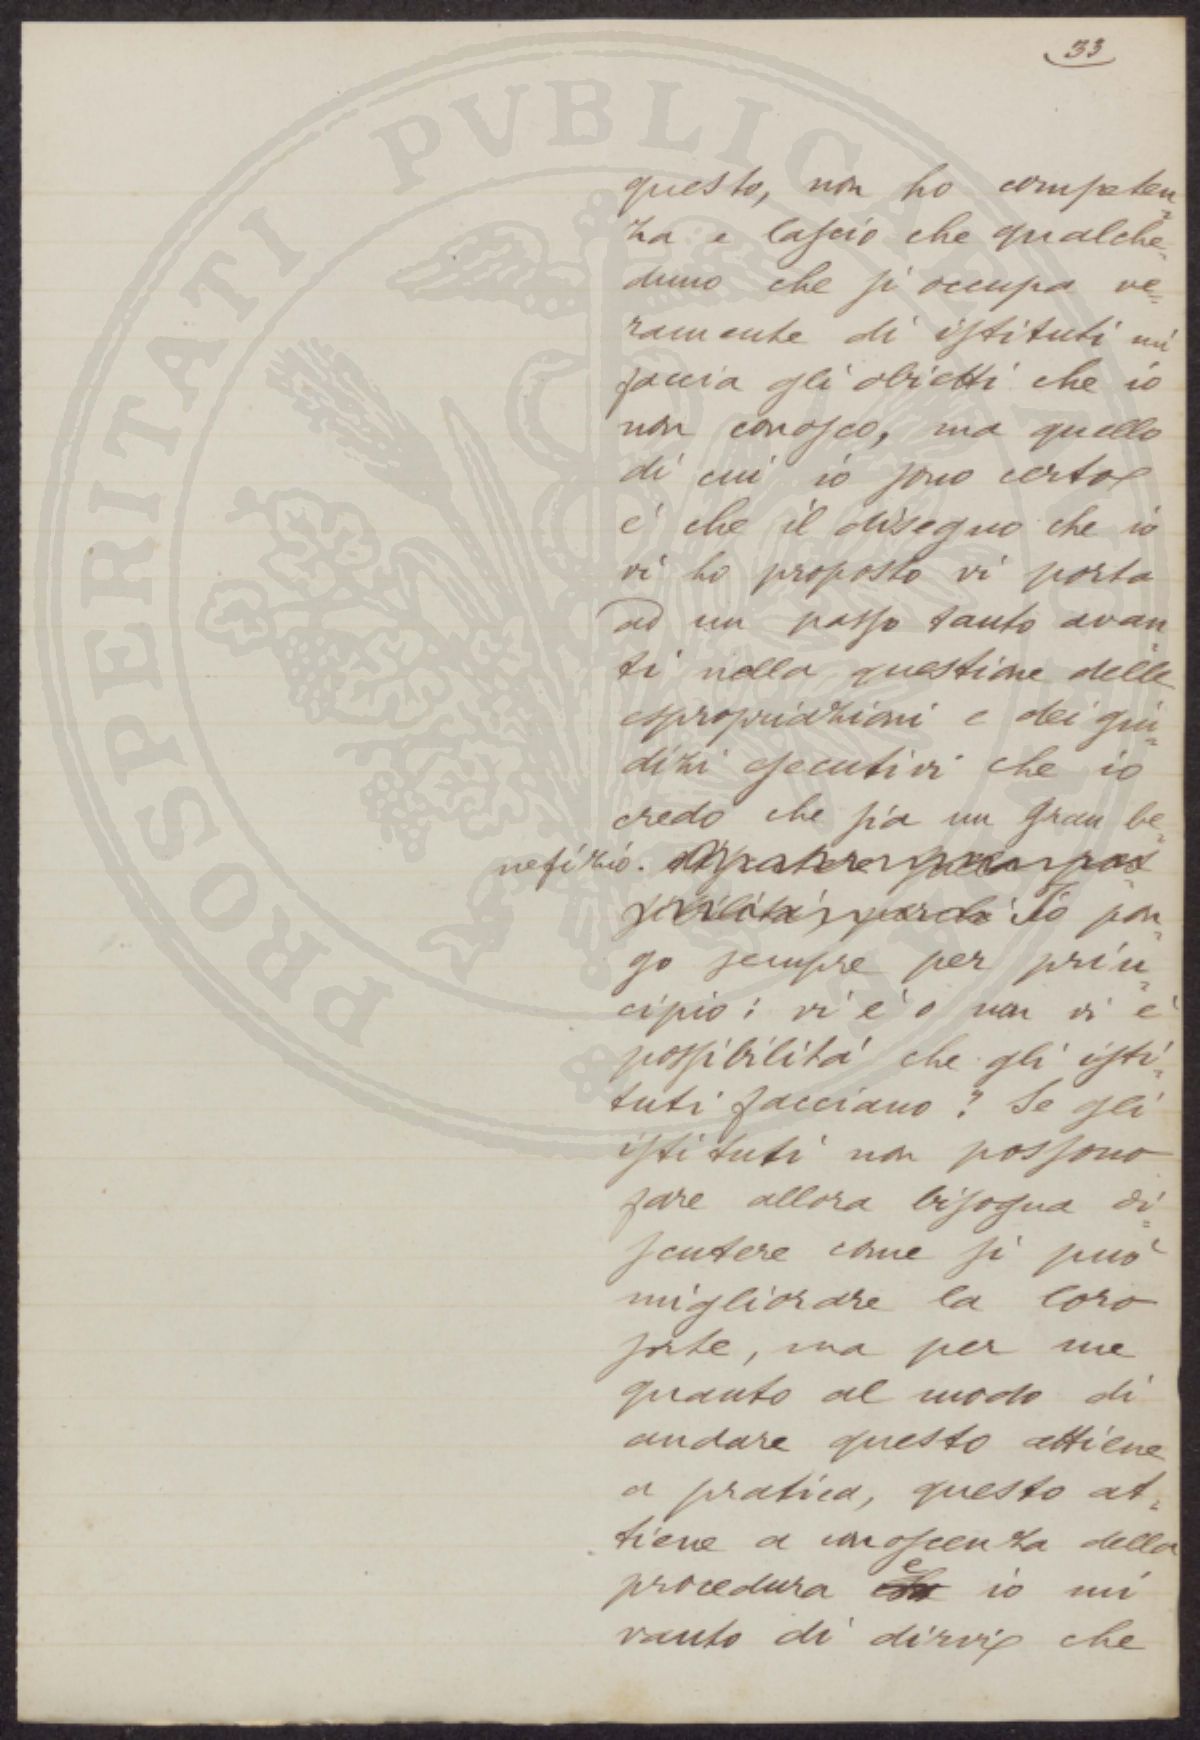 33
PROSPERITATI PVBLICAE
questo, non ho competen=
za e lascio che qualche=
duno che si occupa ve=
ramente di istituti mi
faccia gli obietti che io
non conosco, ma quello
di cui io sono certo
é che il disegno che io
vi ho proposto vi porta
ad un passo tanto avan=
ti nella questione delle
espropriazioni e dei giu=
dizi esecutivi che io
credo che sia un gran be=
nefizio.
Io pon=
go sempre per prin=
cipio: vi é o non vi é
possibilitá che gli isti=
tuti facciano? Se gli
istituti non possono
fare allora bisogna di=
scutere come si può
migliorare la loro
sorte, ma per me
quanto al modo di
andare questo attiene
a pratica, questo at=
tiene a conoscenza della
procedura e io mi
vanto di dirvi che